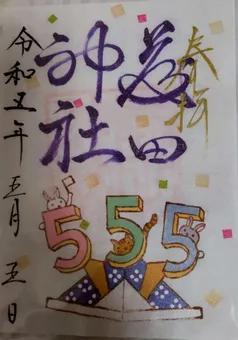 奉拝
田
神社
令和五年 五月 五日
555